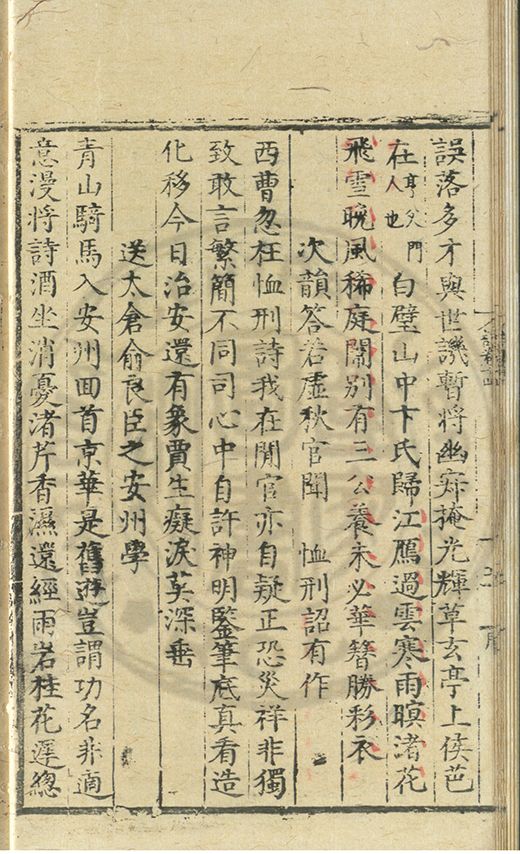 誤落多才與世譏暫將幽㝎掩光輝草玄亭上侯芭
在享父門人也白璧山中卞氏歸江鴈過雲寒雨暝渚花
飛雪晚風稀庭闈别有三公養未必華簪勝彩衣
次韻答若虛秋官聞恤刑詔有作
西曹忽枉恤刑詩我在閒官亦自疑正恐災祥非獨
致敢言繁簡不同司心中自許神明鑒筆底真看造
化移今日治安還有象賈生癡淚莫深垂
送太倉俞良臣之安州學
青山騎馬入安州回首京華是舊遊豈謂功名非適
意漫將詩酒坐消憂渚芹香濕還經雨岩桂花遲總